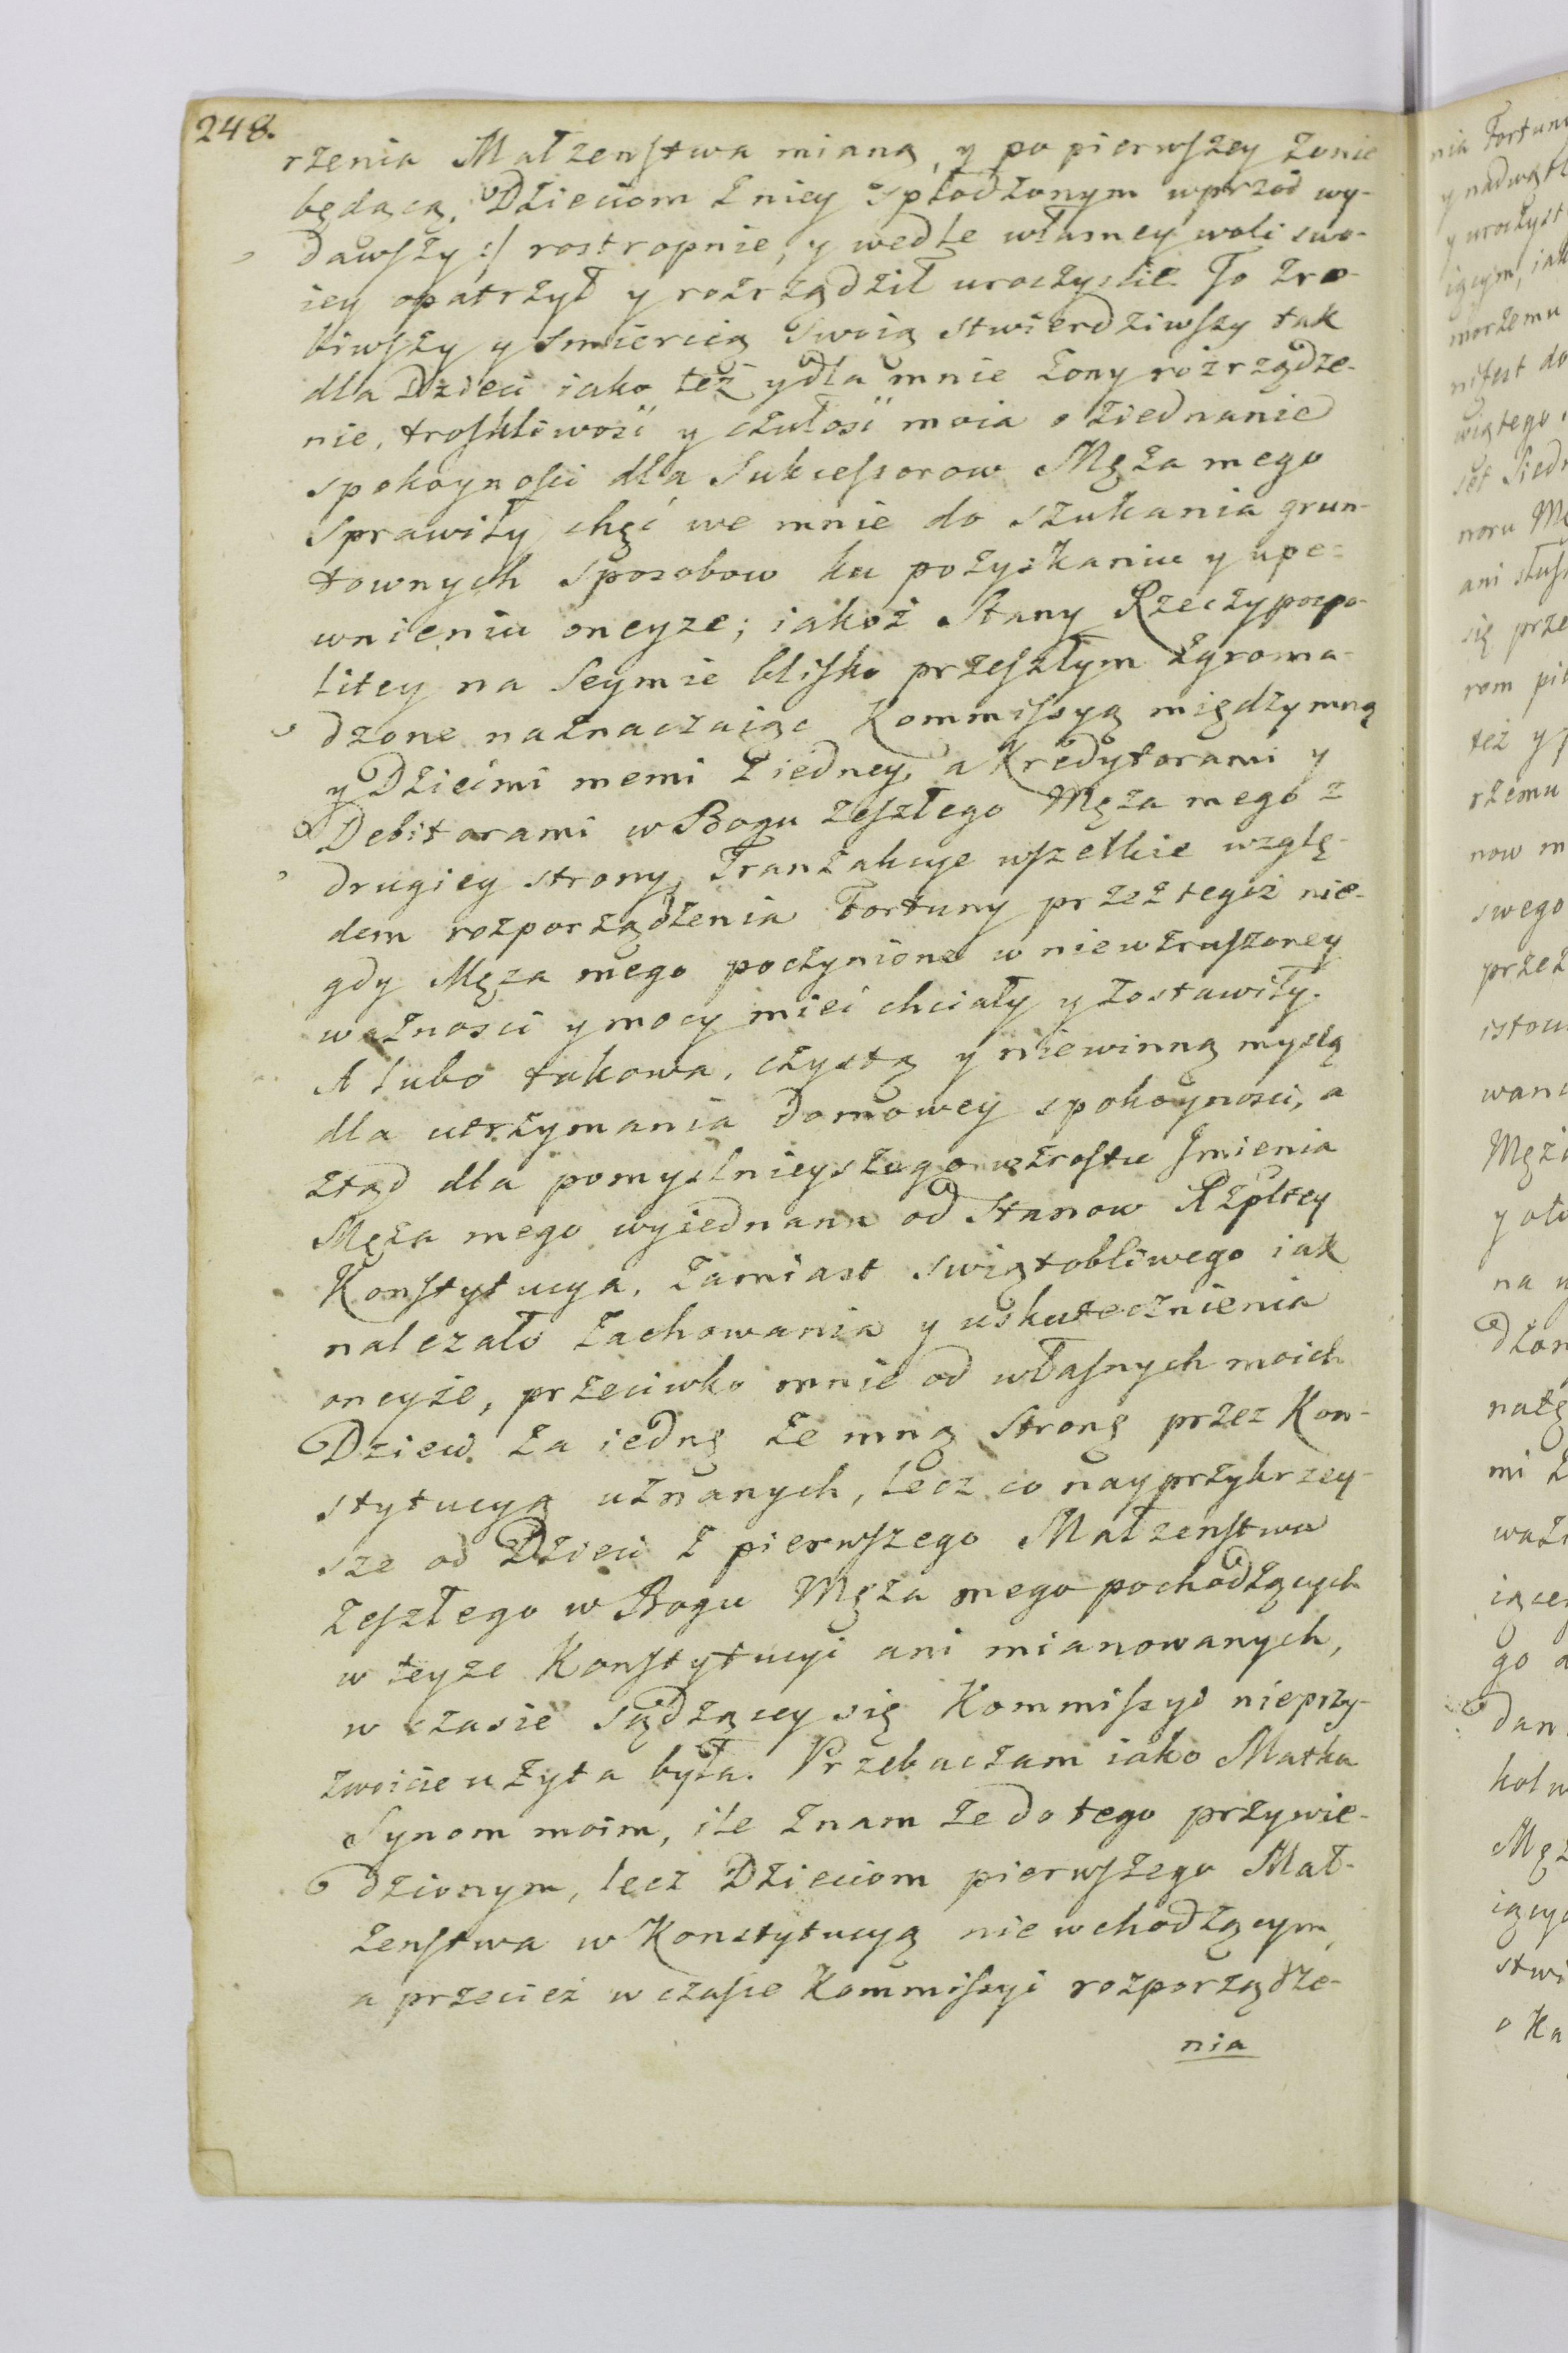 248.
rzenia Małzenstwa mianą, y po pierwszey Zonie
będącą, Dzieciom z niey spłodzonym wprzod wy-
dawszy :/ rostropnie, y wedle własney woli swo-
iey opatrzył y rozrządził uroczyscie. To zro-
biwszy y smiercią swoią stwierdziwszy tak
dla Dzieci iako też y dla mnie Zony rozrządze-
nie, troskliwość y czułość moia o ziednanie
spokoynosci dla Sukcessorow Męża mego
sprawiły chęć we mnie do szukania grun-
townych sposobow ku pozyskaniu y upe-
wnieniu oneyze; iakoż Stany Rzeczypospo-
litey na Seymie blisko przeszłym zgroma-
dzone naznaczaiąc Kommissyą między mną
y Dziećmi memi z iedney, a Kredytorami y
Debitorami w Bogu zeszłego Męża mego z
drugiey strony, Tranzakcye wszelkie wzglę-
dem rozporządzenia Fortuny przez tegoż nie-
gdy Męza mego poczynione w niewzruszoney
ważnosci y mocy mieć chciały y zostawiły.
A lubo takowa, czystą y niewinną myslą
dla utrzymania domowey spokoynosci, a
ztąd dla pomyslnieyszego wzrostu Jmienia
Męża mego wyiednana od Stanow Rzpltey
Konstytucya, zamiast swiątobliwego iak
nalezało zachowania y uskutecznienia
oneyże, przeciwko mnie od własnych moich
Dzieci za iednę ze mną stronę przez Kon-
stytucyą uznanych, lecz co nayprzykrzey-
sze od Dzieci z pierwszego Małzenstwa
zeszłego w Bogu Męża mego pochodzących
w teyze Konstytucyi ani mianowanych,
w czasie sądzącey się Kommissyi nieprzy-
zwoicie użyta była. Przebaczam iako Matka
Synom moim, ile znam że do tego przywie-
dzionym, lecz Dzieciom pierwszego Mał-
żenstwa w Konstytucyą nie wchodzącym,
a przecież w czasie Kommissyi rozporządze-
nia